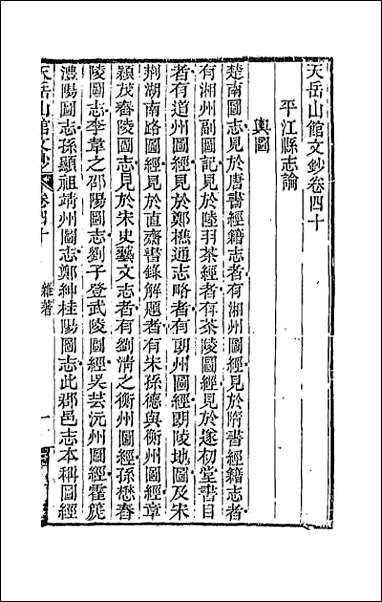 天岳山館文鈔卷四十
平江縣志論
輿圖
楚南圖志見於唐書經籍志者有湘州圖經見於隋書經籍志者
有湘州副圖記見於陸羽茶經者有茶陵圖經見於遂初堂書目
者有道州圖經見於鄭樵通志略者有朗州圖經朗陵地圖及宋
荆湖南路圖經見於直齋書錄解題者有宋孫德輿衡州圖經章
潁茂舂陵圖志見於宋史藝文志者有劉清之衡州圖經孫楙舂
陵圖志李韋之邵陽圖志劉子登武陵圖經吳芸沅州圖經霍篪
澧陽圖志孫顯祖靖州圖志鄭紳桂陽圖志此郡邑志本稱圖經
天岳山館文鈔
卷四十
雜著
一